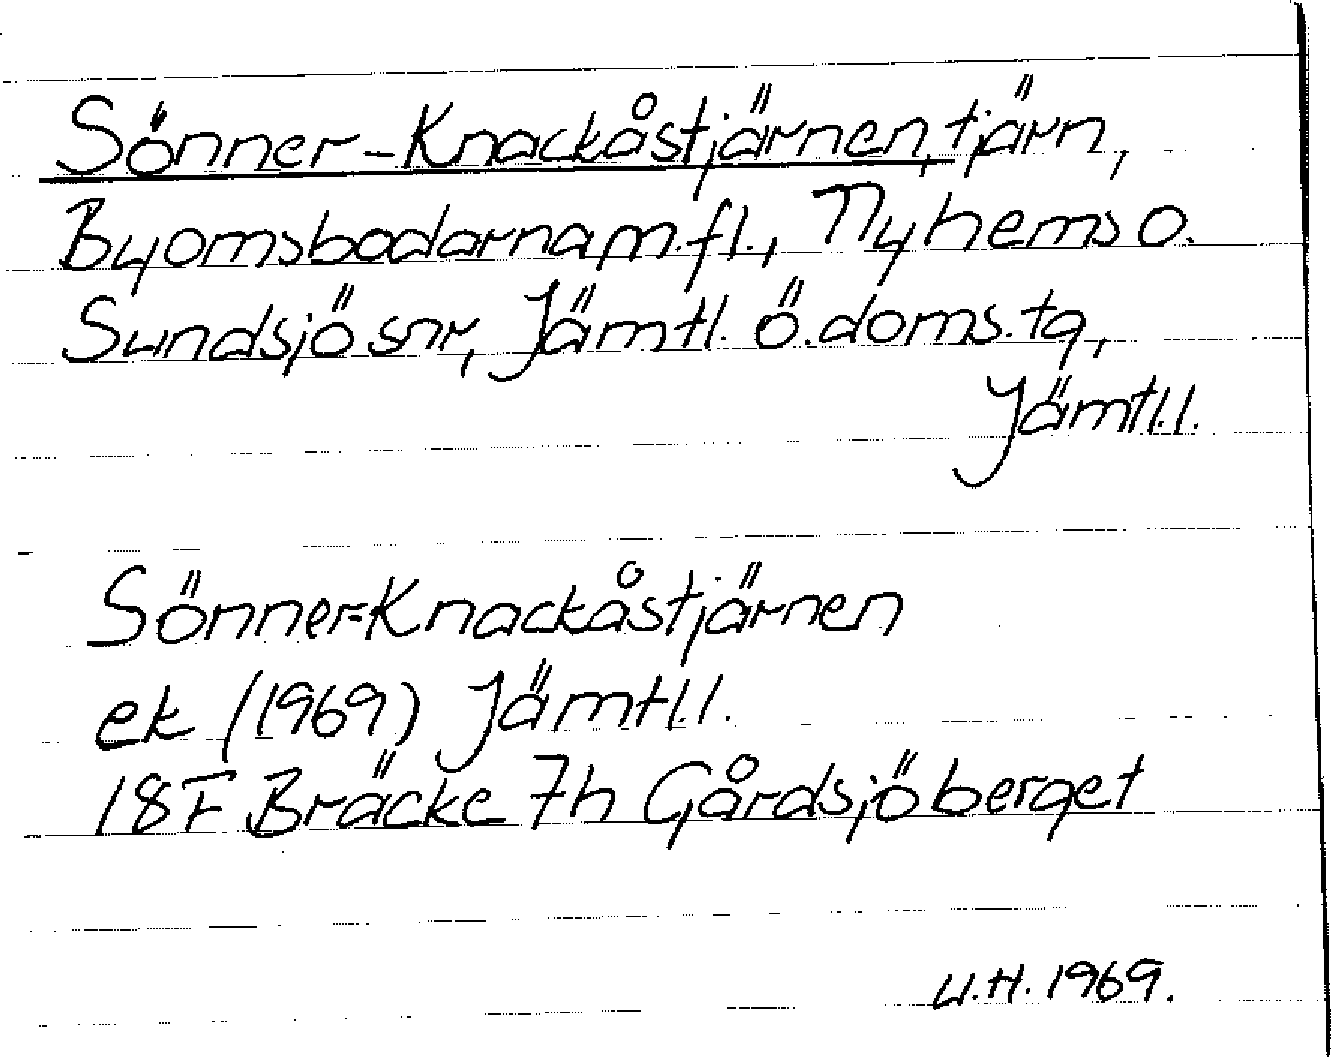 Sönner-Knackåstjärnen, tjärn,
Byomsbodarna m.fl., Nyhems o.
Sundsjö snr, Jämtl. ö. doms. tg,
Jämtl.l.
Sönner=Knackåstjärnen
ek (1969) Jämtl.l.
18F Bräcke 7h Gårdsjöberget
U.H. 1969.